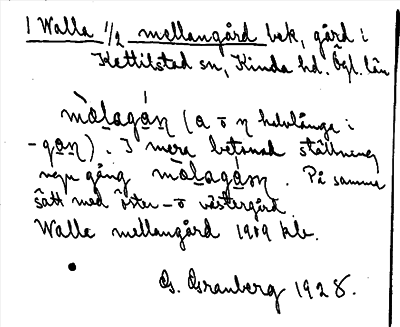 1 Walla 1/2 mellangård bek, gård i
Kettilstad sn, Kinda hd. Ögl. län
mòlagáŋ (a o ŋ halvlånga i
-gaŋ). I mera betonad ställning
någon gång mòlagáŋ. På samma
sätt med öster- o västergård.
Walla mellangård 1909 klv.
G. Granberg 1928.